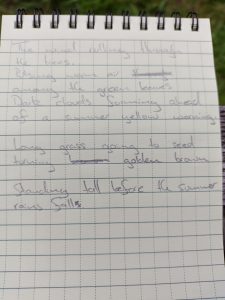 The wind rolling through
the trees.
among the green leaves
Dark clouds forming ahead
of a summer yellow warning.
Long grass going to seed
turning golden brown
Standing tall before the summer
rains falls